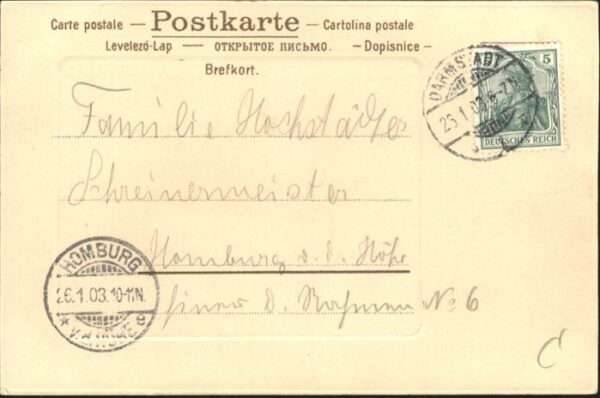 Carte postale – Postkarte – Cartolina postale
Levelező-Lap — ОТКРЫТОЕ ПИСЬМО. – Dopisnice –
Brefkort.
DARMSTADT
25.1.03.6-7N.
5
DEUTSCHES REICH
Familie Hochstädter
Schreinermeister
Homburg v. d. Höhe
hinter d. Rahmen No 6
HOMBURG
26.1.03.10-11N.
* v. d. HÖHE